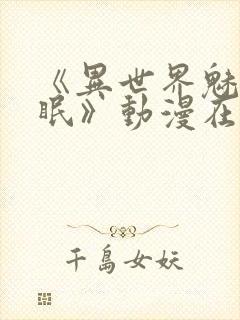 《異世界魅
眠》動漫在
千島女妖